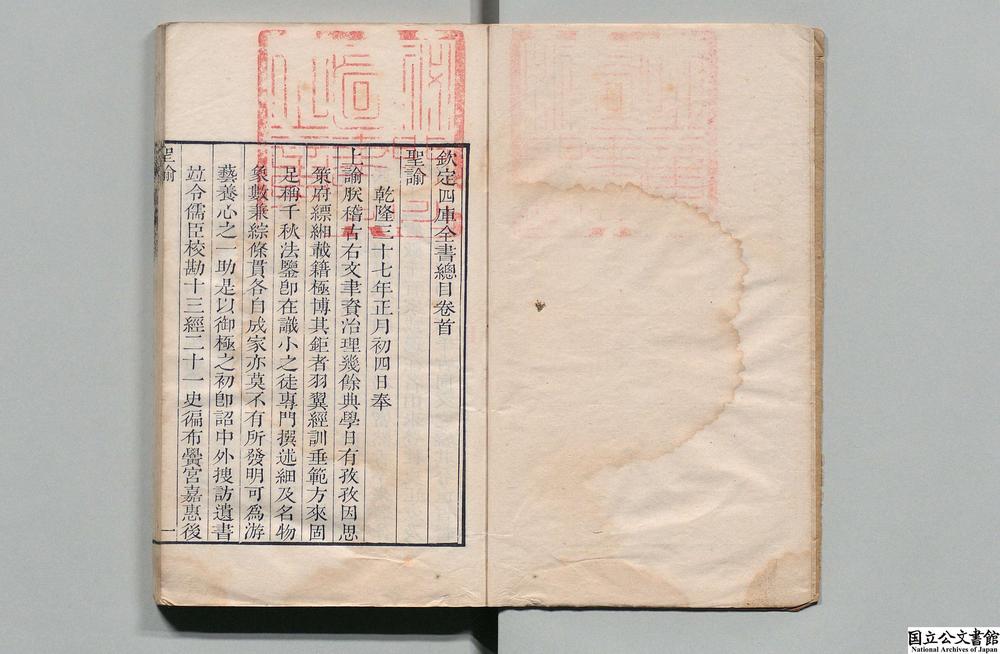 欽定四庫全書總目卷首
聖諭
乾隆三十七年正月初四日奉
上諭朕稽古右文聿資治理幾餘典學日有孜孜因思
策府縹緗載籍極博其鉅者羽翼經訓垂範方來固
足稱千秋法鑒卽在識小之徒專門撰述細及名物
象數兼綜條貫各自成家亦莫不有所發明可爲游
藝養心之一助是以御極之初卽詔中外搜訪遺書
竝令儒臣校勘十三經二十一史徧布黌宮嘉惠後
聖諭
一
国立公文書館
National Archives of Japan